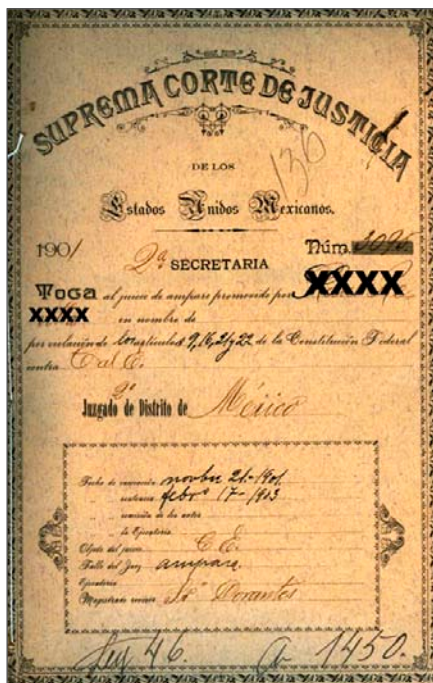 SUPREMA CORTE DE JUSTICIA
136
DE LOS
Estados Unidos Mexicanos.
1901
Núm. 3095
2ª SECRETARIA
Toca al juicio de amparo promovido por XXXX
XXXX en nombre de
por violación de los artículos 9, 16, 21 y 22 de la Constitución Federal
contra C. del E.
2º
Juzgado de Distrito de México
Fecha de novbre 21-1901
sentencia febrº 17-1903
remisión de los autos
la Ejecutoria
Objeto del juicio C. E.
Fallo del Juez ampara.
Ejecutoria
Magistrado Dorantes
Leg 46. A- 1450.